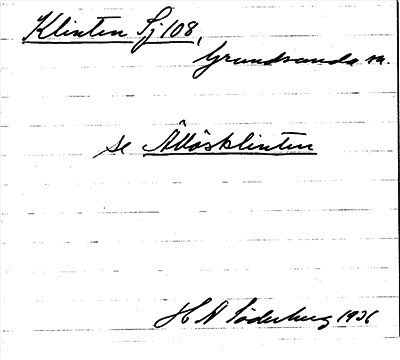 Klinten Sj 108,
Grundsunda sn.
se Ållösklinten
H A Söderberg 1931